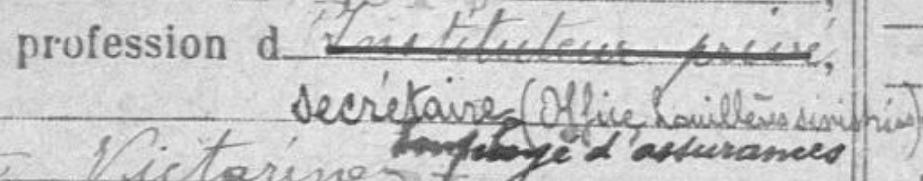 profession d'Instituteur privé,
secrétaire (Office houillères sinistrées)
employé d'assurances
Victorine